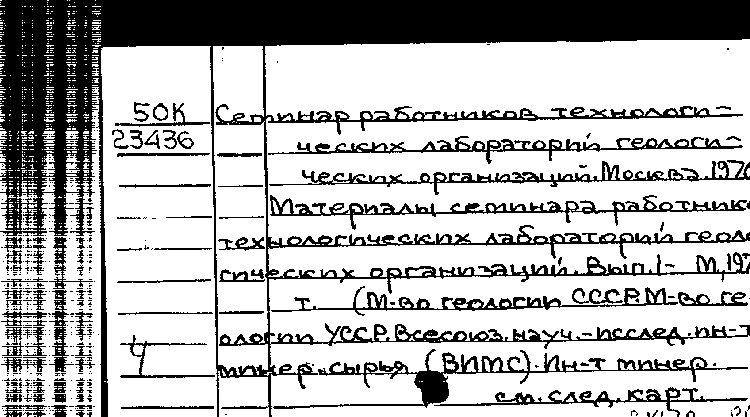 50К Семинар работников технологи-
23436 ческих лабораторий геологи-
ческих организаций. Москва. 197
Материалы семинара работник
технологических лабораторий геоло
гических организаций. Вып. 1- М, 197
т. (М-во геологии СССР. М-во ге
ологии УССР. Всесоюз. науч.-исслед. ин-т
4 минер. сырья (ВИМС). Ин-т минер.
см. след. карт.